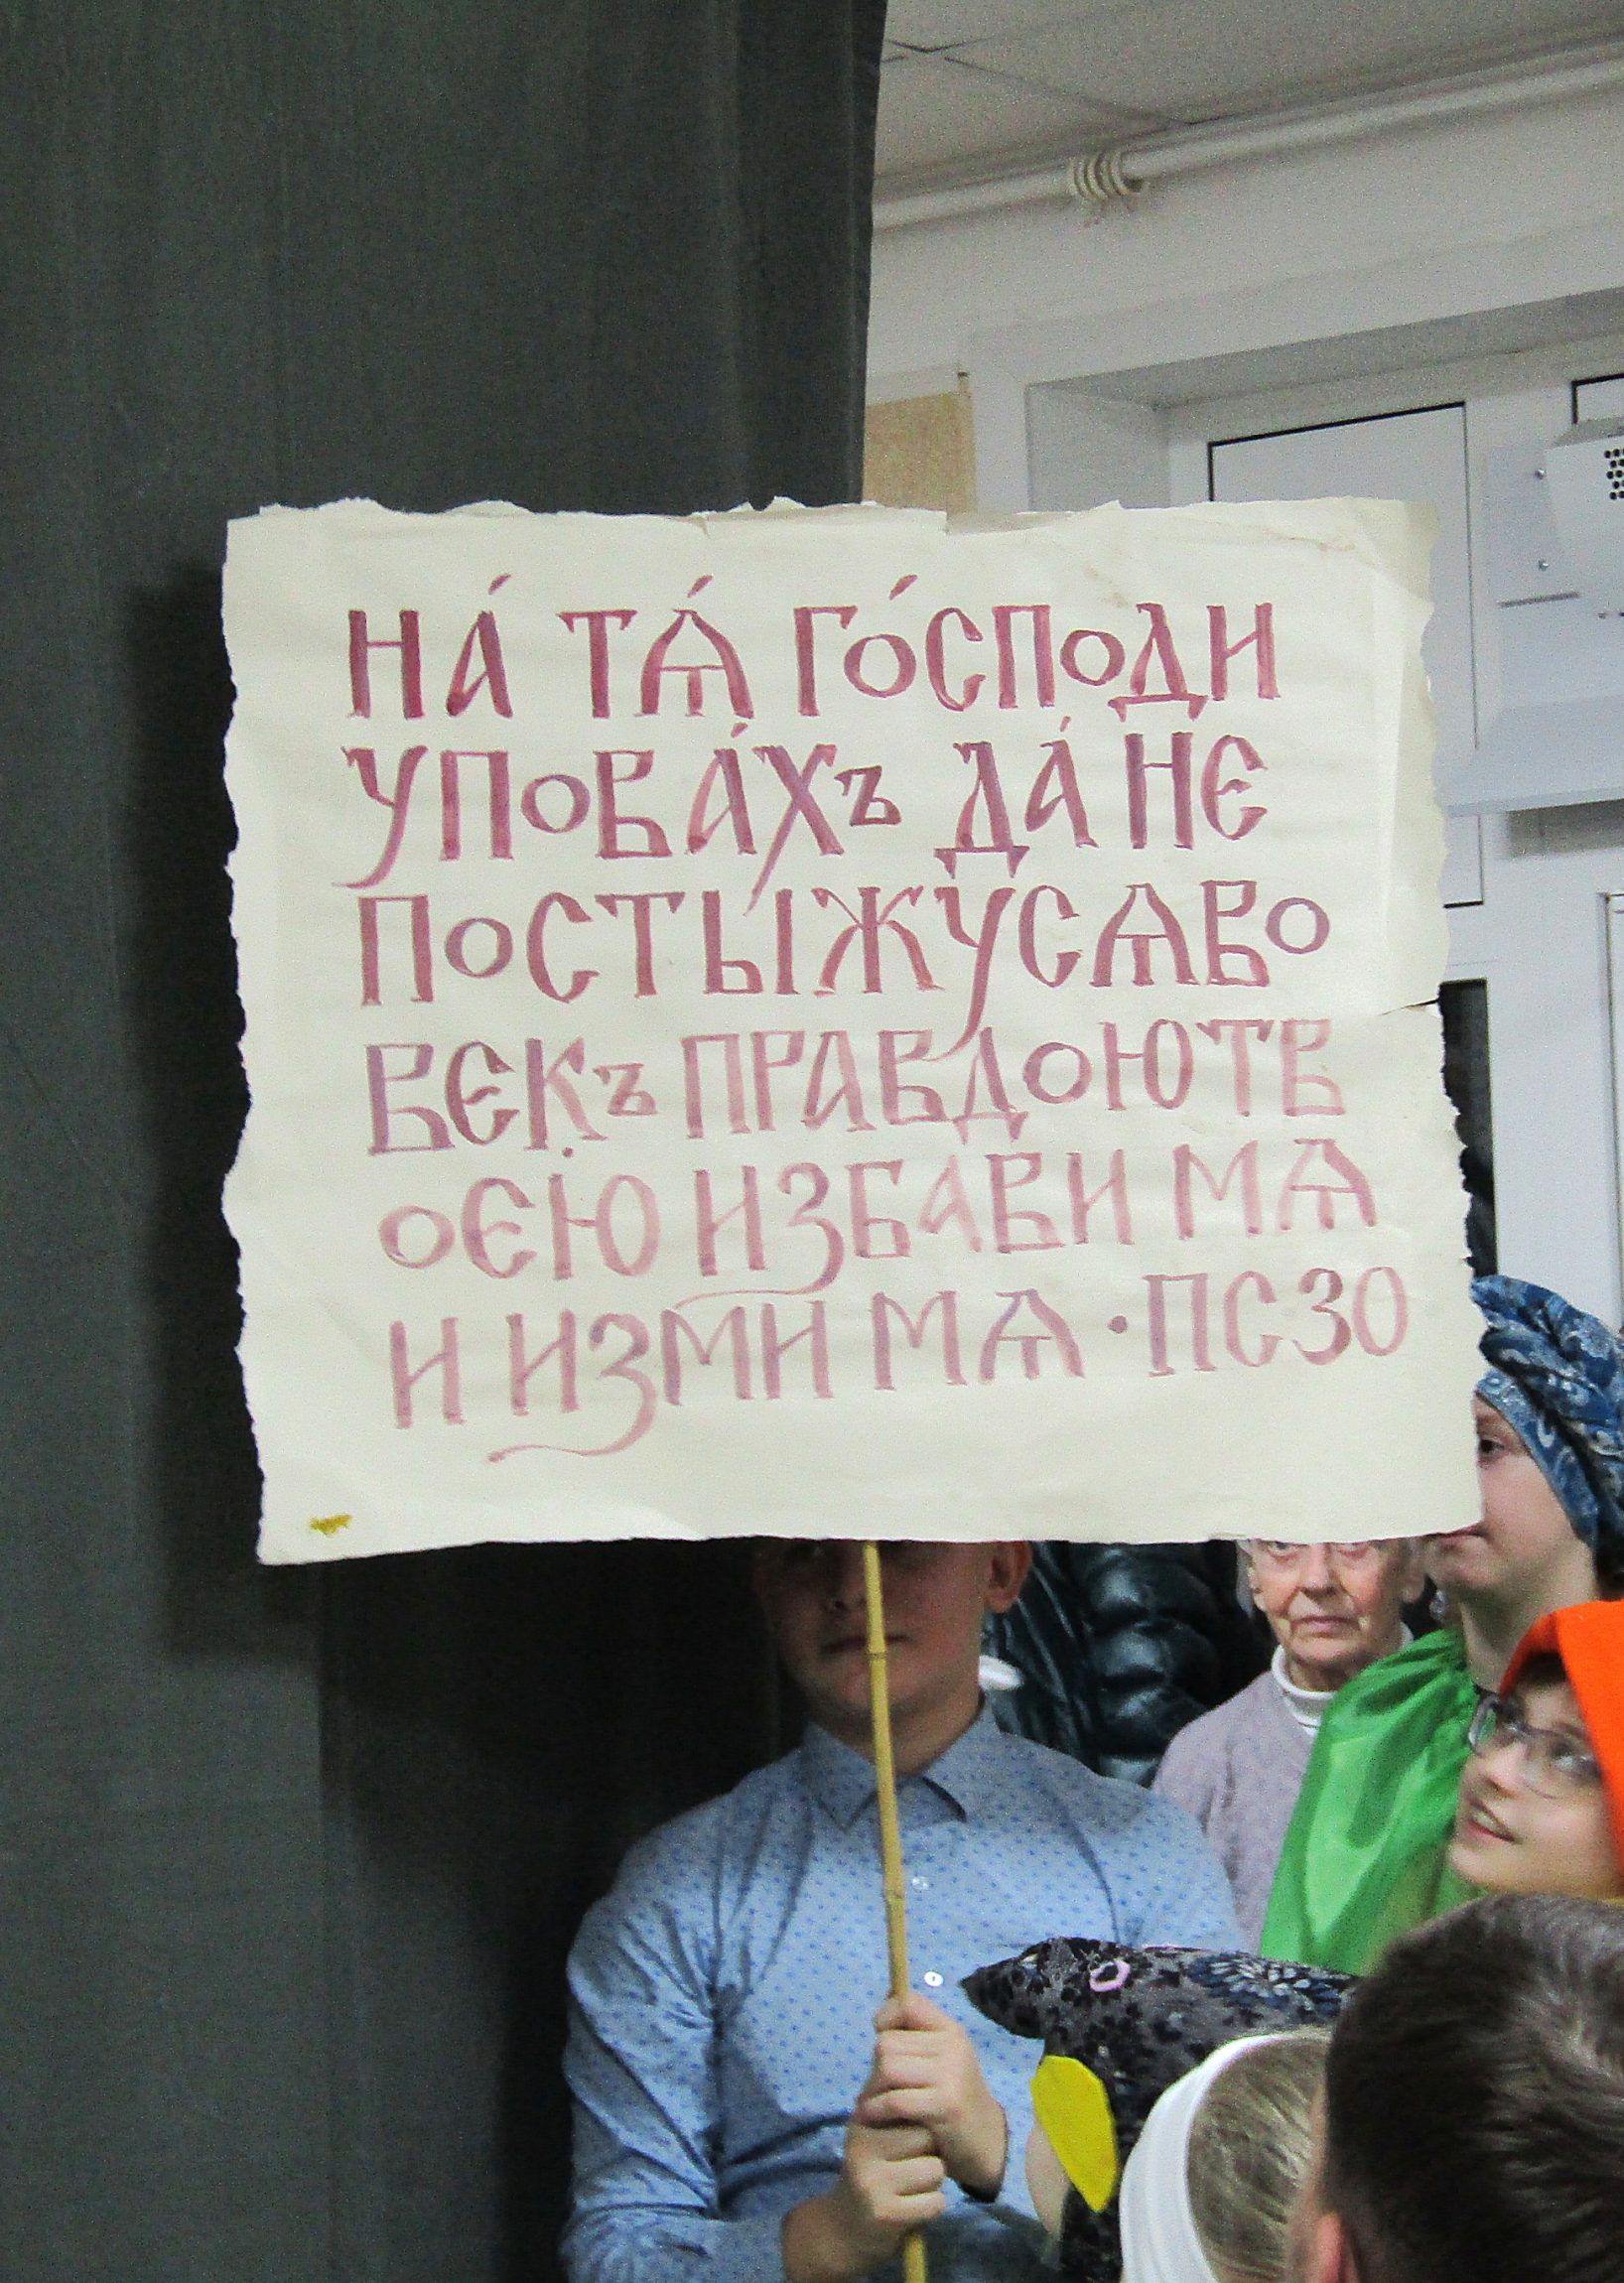 НА́ ТѦ́ ГО́СПОДИ
УПОВА́ХЪ ДА́ НЄ
ПОСТЫЖУСѦВО
ВЄКЪ ПРАВДОЮТВ
ОЄЮ ИЗБАВИ МѦ
И ИЗМИ МѦ · ПС 30